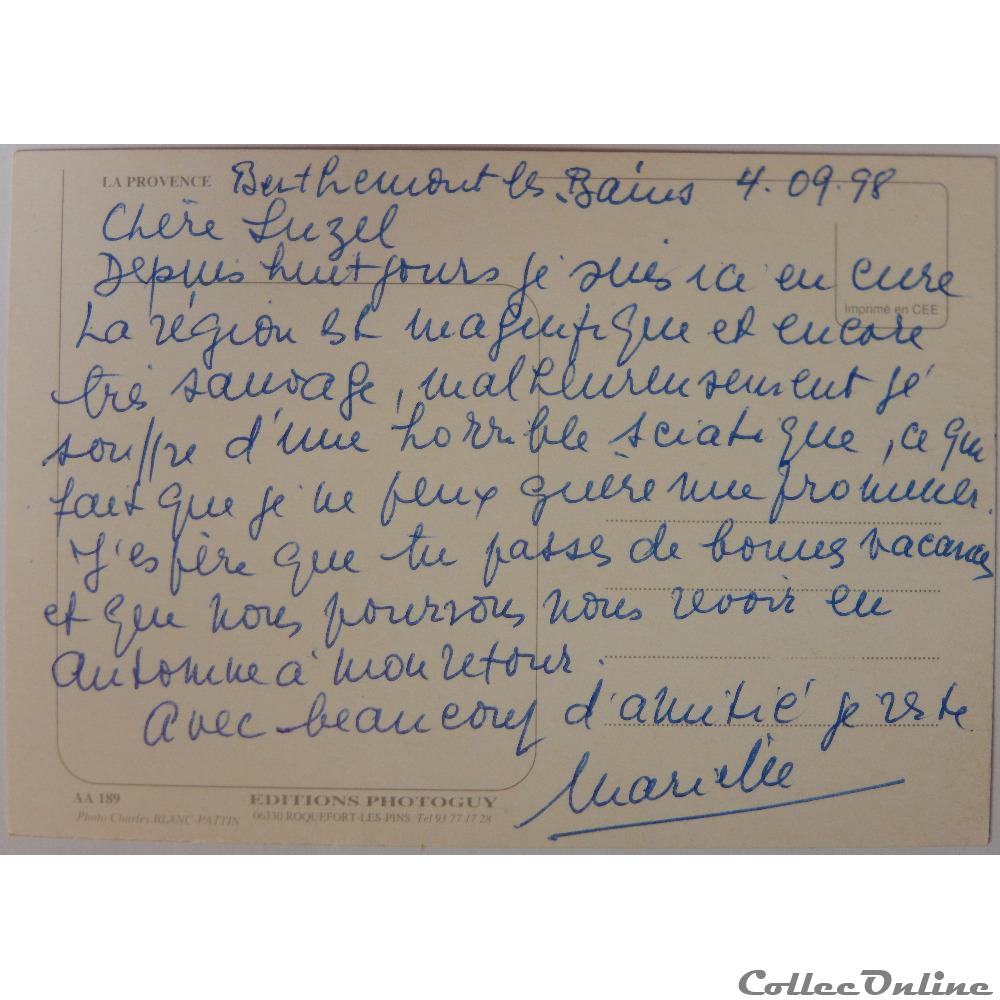 LA PROVENCE Berthemont les Bains 4.09.98
Chère Suzel
Depuis huit jours je suis ici en cure
Imprimé en CEE
La région est magnifique et encore
très sauvage, malheureusement je
souffre d'une horrible sciatique, ce qui
fait que je ne peux guère me promener.
J'espère que tu passes de bonnes vacances
et que nous pourrons nous revoir en
automne à mon retour.
Avec beaucoup d'amitié je reste
Marielle
AA 189 EDITIONS PHOTOGUY
Photo Charles BLANC-PATTIN 06330 ROQUEFORT-LES-PINS Tel 93 77 17 28
CollecOnline